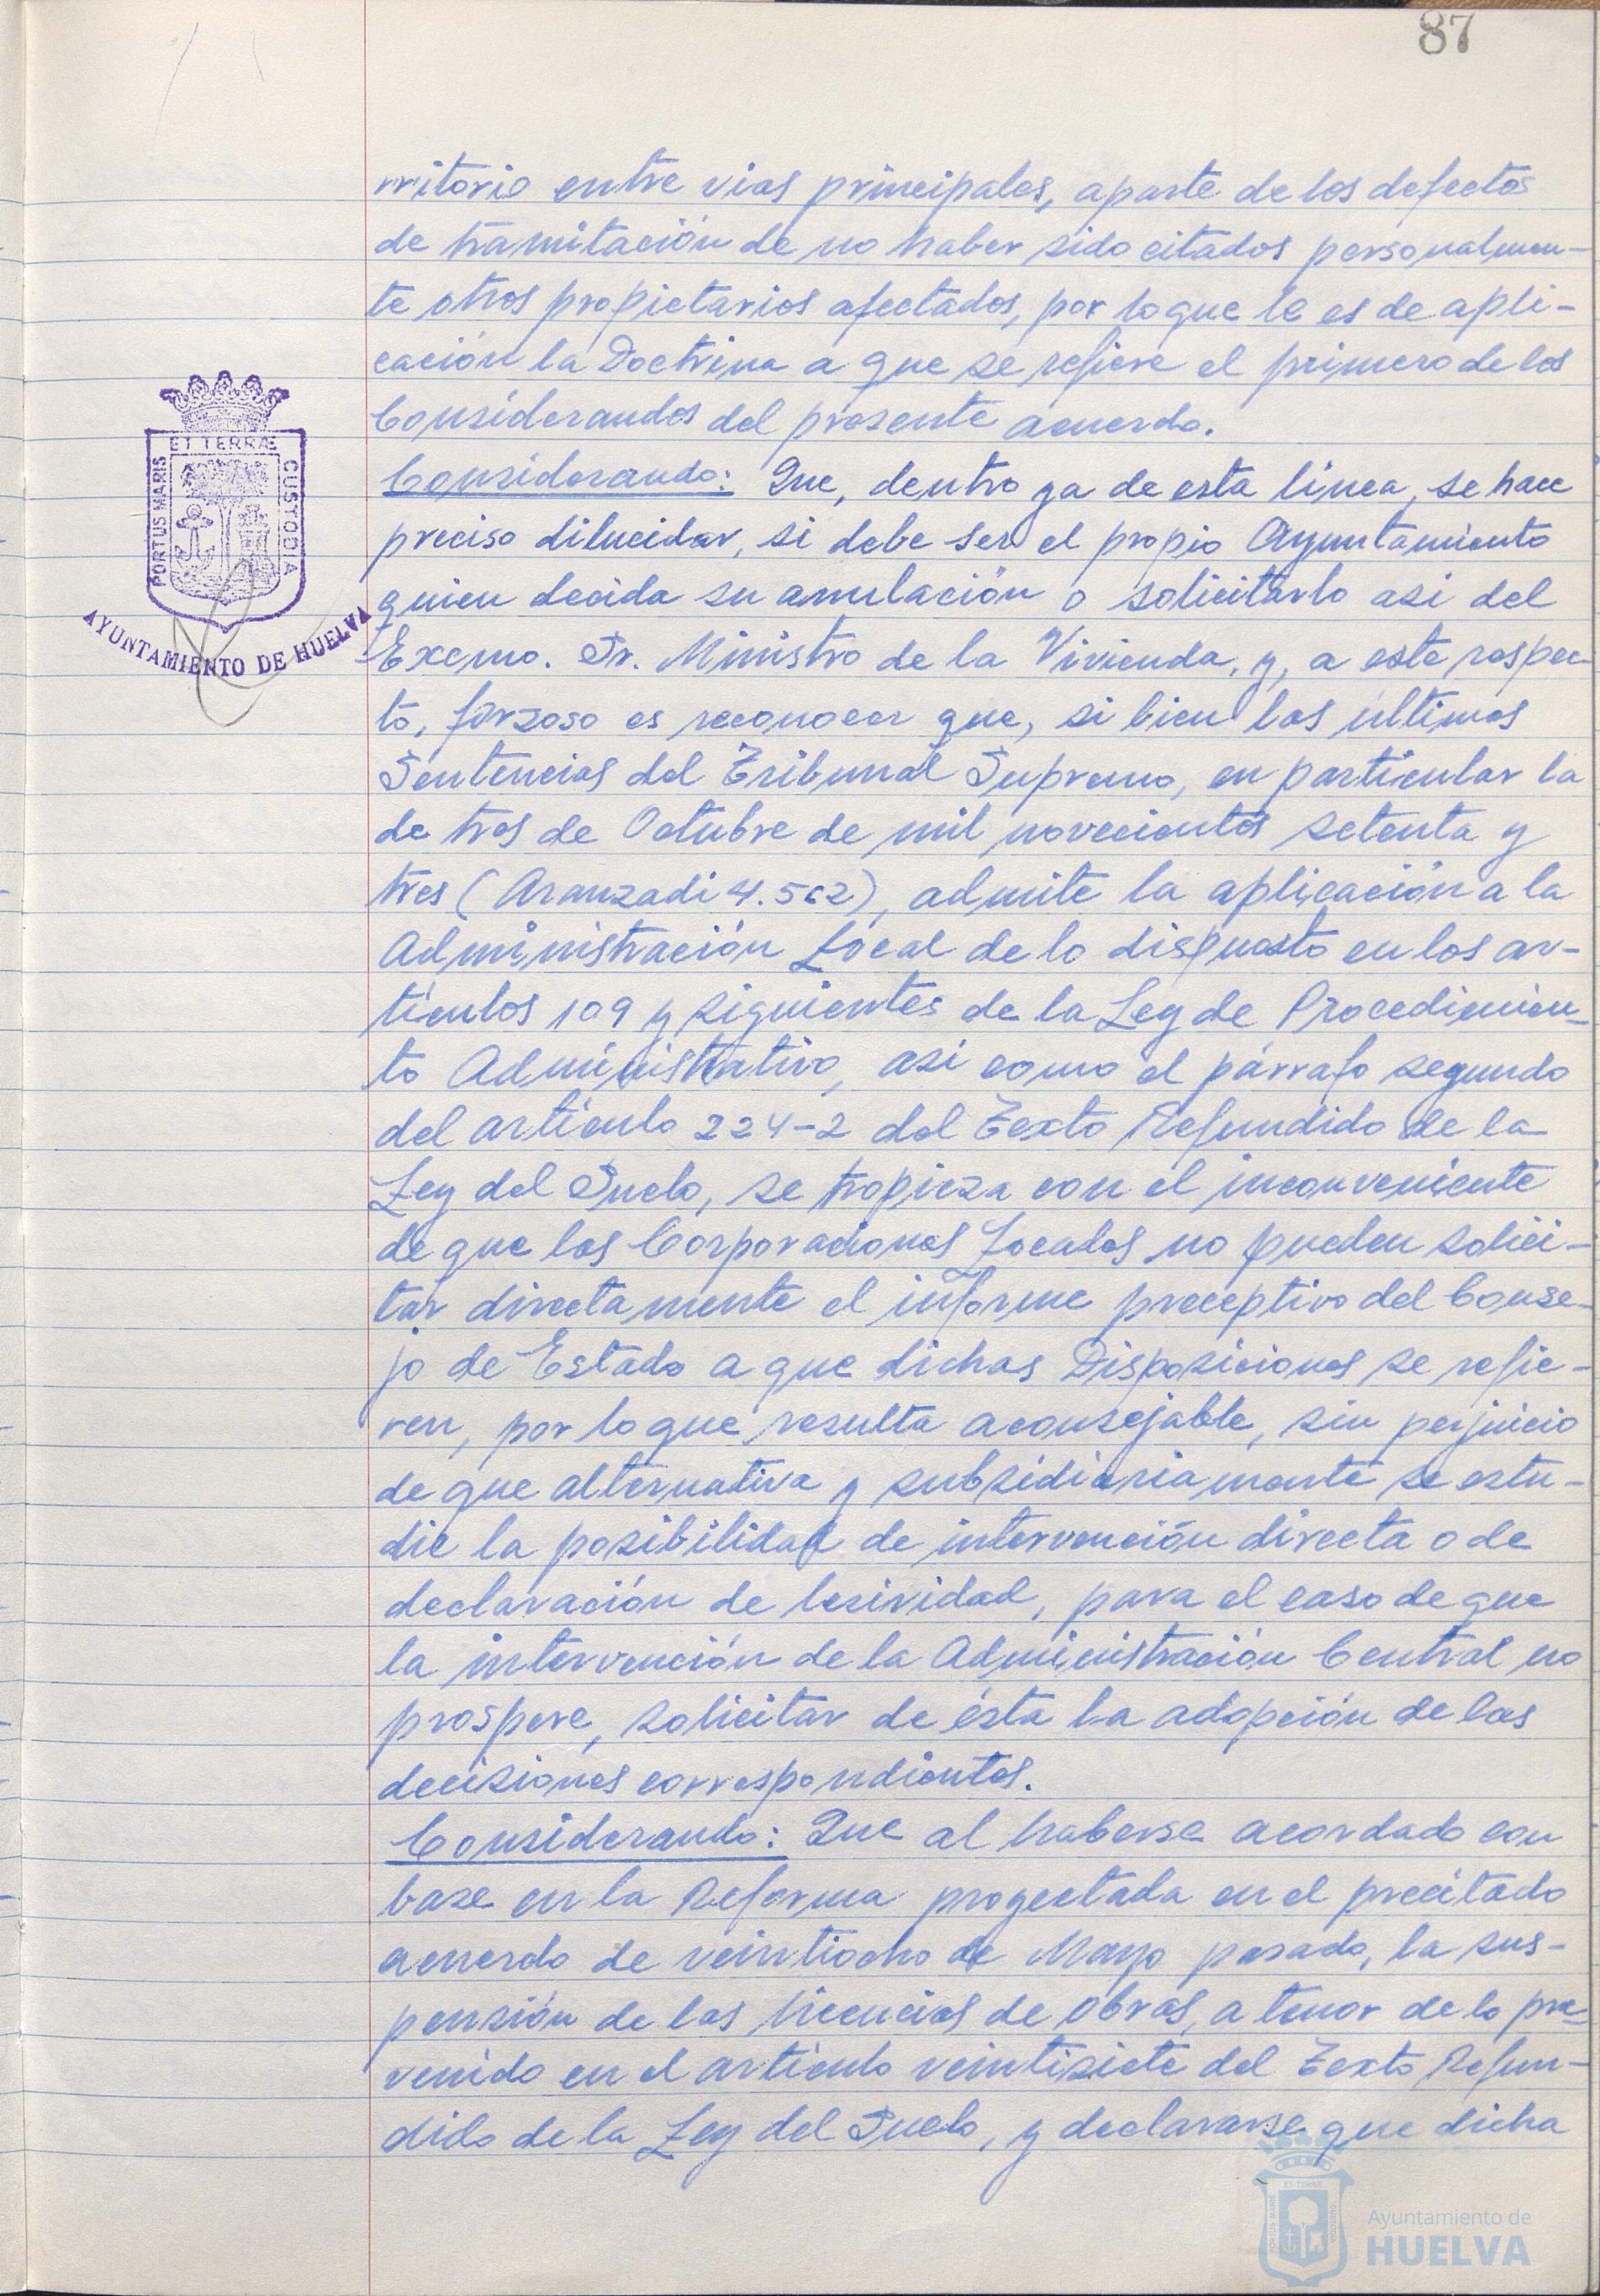 87
rritorio entre vias principales, aparte de los defectos
de tramitación de no haber sido citados personalmen-
te otros propietarios afectados, por lo que le es de apli-
cación la Doctrina a que se refiere el primero de los
Considerandos del presente acuerdo.
Considerando: Que, dentro ya de esta línea, se hace
preciso dilucidar, si debe ser el propio Ayuntamiento
quien decida su anulación o solicitarlo asi del
Excmo. Sr. Ministro de la Vivienda, y, a este respec-
to, forzoso es reconocer que, si bien las últimas
Sentencias del Tribunal Supremo, en particular la
de tres de Octubre de mil novecientos setenta y
tres (Aranzadi 4.562), admite la aplicación a la
Administración Local de lo dispuesto en los ar-
tículos 109 y siguientes de la Ley de Procedimien-
to Administrativo, asi como el párrafo segundo
del artículo 224-2 del Texto Refundido de la
Ley del Suelo, se tropieza con el inconveniente
de que las Corporaciones Locales no pueden solici-
tar directamente el informe preceptivo del Conse-
jo de Estado a que dichas Disposiciones se refie-
ren, por lo que resulta aconsejable, sin perjuicio
de que alternativa y subsidiariamente se estu-
die la posibilidad de intervención directa o de
declaración de lesividad, para el caso de que
la intervención de la Administración Central no
prospere, solicitar de ésta la adopción de las
decisiones correspondientes.
Considerando: Que al haberse acordado con
base en la Reforma proyectada en el precitado
acuerdo de veintiocho de Mayo pasado, la sus-
pensión de las licencias de obras, a tenor de lo pre-
venido en el artículo veintisiete del Texto Refun-
dido de la Ley del Suelo, y declararse que dicha
PORTUS MARIS ET TERRÆ CUSTODIA
AYUNTAMIENTO DE HUELVA
Ayuntamiento de
HUELVA